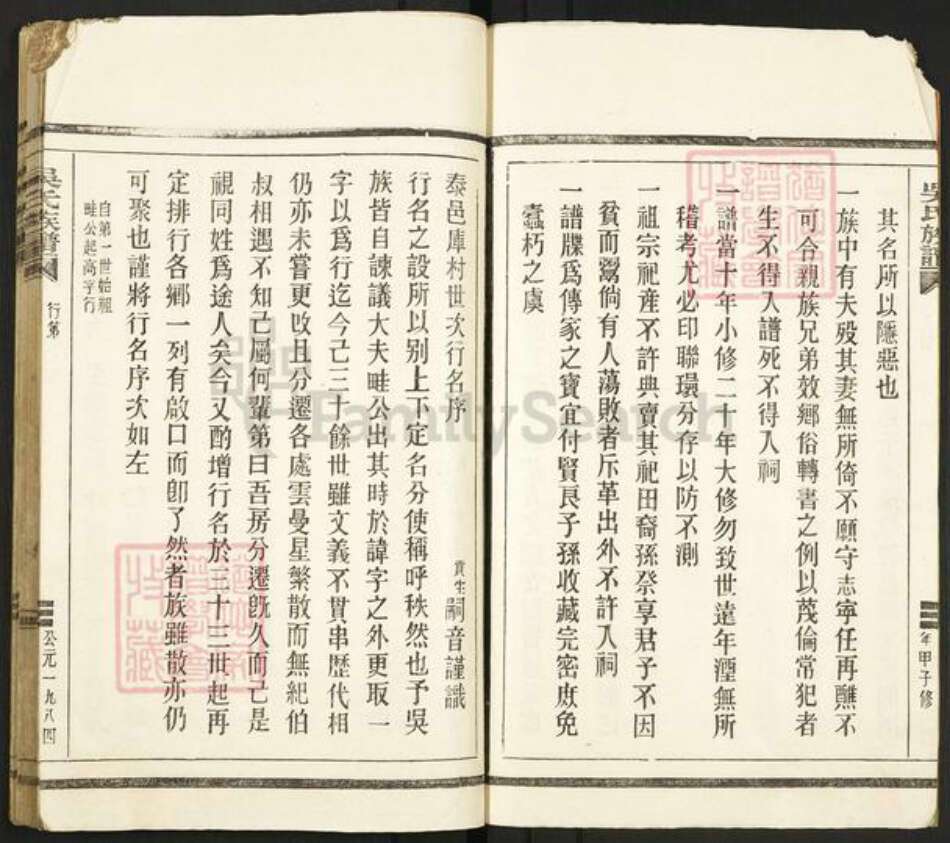 吳氏族譜
年甲子修
其名所以隱惡也
一族中有夫殁其妻無所倚不願守志寧任再醮不
可合親族兄弟效鄉俗轉書之例以茂倫常犯者
生不得入譜死不得入祠
一譜當十年小修二十年大修勿致世遠年湮無所
稽考尤必印聯環分存以防不測
一祖宗祀產不許典賣其祀田裔孫祭享君子不因
貧而鬻倘有人蕩敗者斥革出外不許入祠
一譜牒爲傳家之寶宜付賢良子孫收藏完密庶免
蠹朽之虞
泰邑庫村世次行名序
貢生嗣音謹識
行名之設所以别上下定名分使稱呼秩然也予吳
族皆自諫議大夫畦公出其時於諱字之外更取一
字以爲行迄今己三十餘世雖文義不貫串歷代相
仍亦未嘗更改且分遷各處雲曼星繁散而無紀伯
叔相遇不知己屬何輩第曰吾房分遷旣久而己是
視同姓爲途人矣今又酌增行名於三十三世起再
定排行各鄉一列有啟口而卽了然者族雖散亦仍
可聚也謹將行名序次如左
自第一世始祖
畦公起高字行
吳氏族譜
行第
公元一九八四
FamilySearch